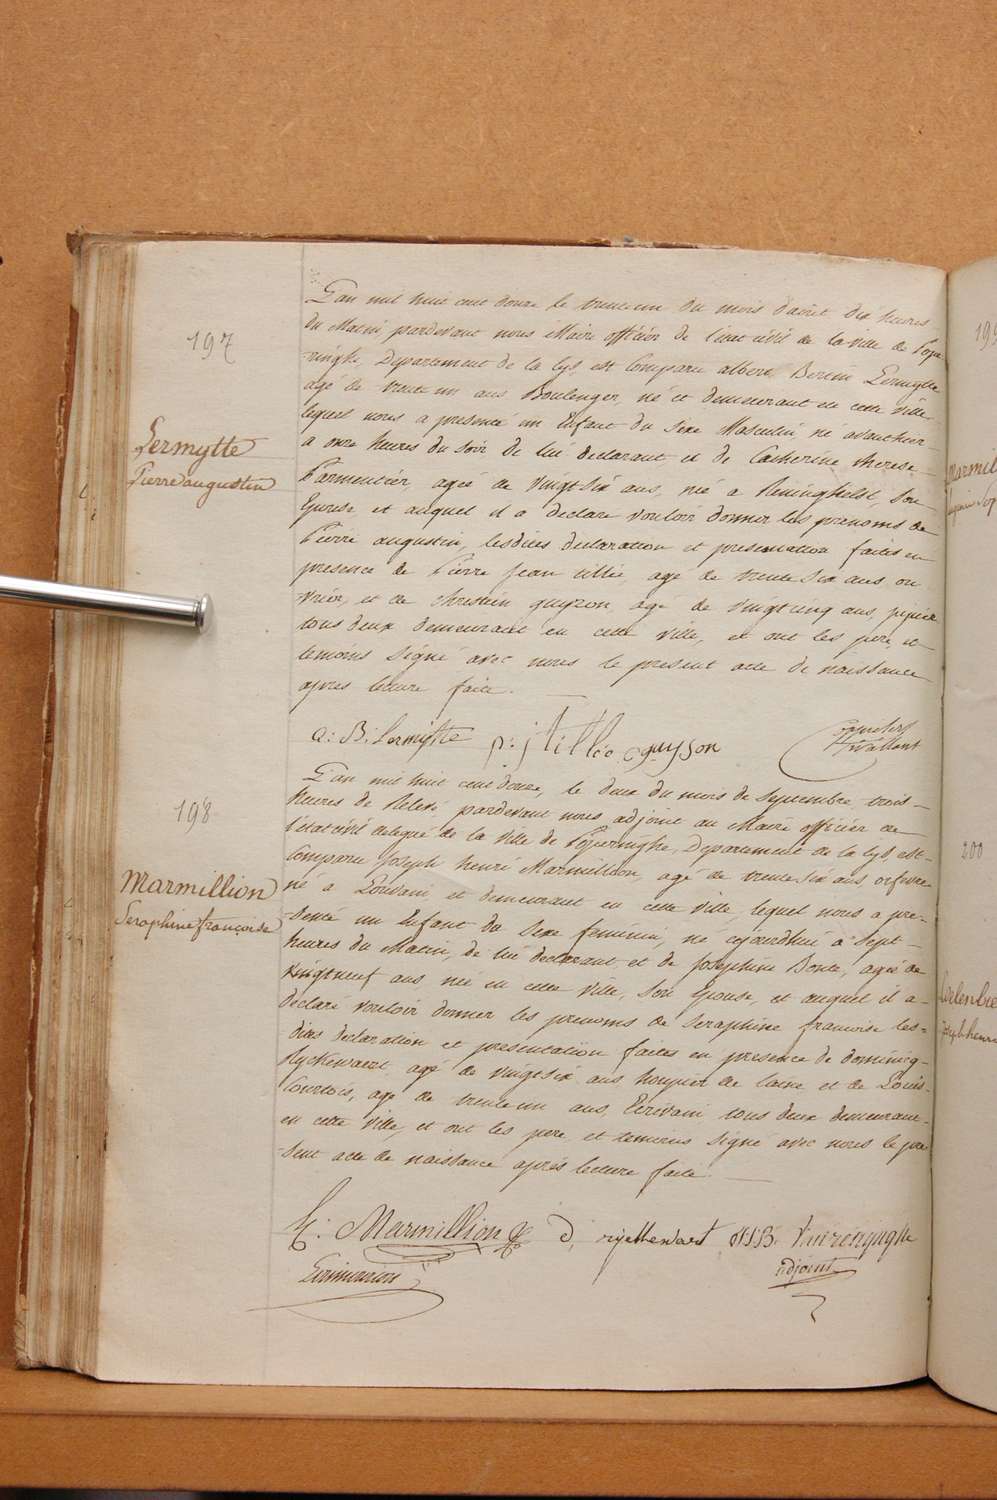 197
Lermytte
Pierre augustin
L'an mil huit cent douze le trente un du mois d'aout dix heures
du Matin, pardevant nous Maire officier de l'etat civil de la ville de Pope
-ringhe, Departement de la Lys, est Comparu albert Lermytte
agé de trente un ans Boulenger, né et demeurant en cette ville,
lequel nous a presenté un Enfant du sexe Masculin, né avanthier
a onze heures du soir de lui declarant et de Catherine therese
Parmentier, agée de vingt six ans, née a Reninghelst, son
Epouse et auquel il a declaré vouloir donner les prenoms de
Pierre augustin, lesdites declaration et presentation faites en
presence de Pierre Jean tillie, agé de trente six ans ou
-vrier, et de christin guyson, agé de vingtcinq ans,
tous deux demeurant en cette ville, et ont les pere, et
temoins signé avec nous le present acte de naissance
apres lecture faite.
a: B: Lermytte p: j tilléo c guyson
198
Marmillion
Seraphine françoise
L'an mil huit cent douze, le deux du mois de Septembre trois
heures de Relevé, pardevant nous adjoint au Maire officier de
l'état civil delegué de la ville de Poperinghe, Departement de la Lys, est
Comparu Joseph henri Marmillion, agé de trente six ans orfevre
né a Louvain et demeurant en cette ville, lequel nous a pre-
-senté un Enfant du Sexe feminin, né cejourdhui à Sept
heures du Matin, de lui declarant et de Josephine Bonte, agée de
vingtneuf ans, née en cette ville, son Epouse, et auquel il a
declaré vouloir donner les prenoms de Seraphine francoise les=
-dites declaration et presentation faites en presence de dominicq
Ryckewaert, agé de vingt six ans, houpier de laine et de Louis
Courtois, agé de trente un ans, Ecrivain, tous deux demeurant
en cette ville, et ont les pere, et temoins signé avec nous le pre
-sent acte de naissance après lecture faite.
h: Marmillion d,
adjoint
200